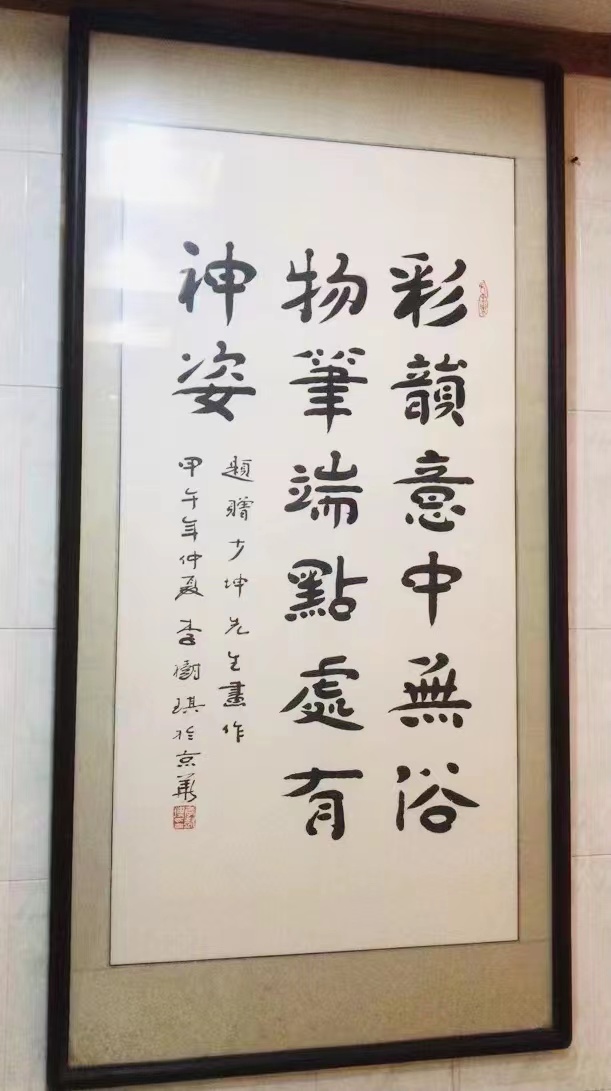 彩韻意中無俗
物筆端點處有
神姿
題贈少坤先生畫作
甲午年仲夏李樹琪於京華